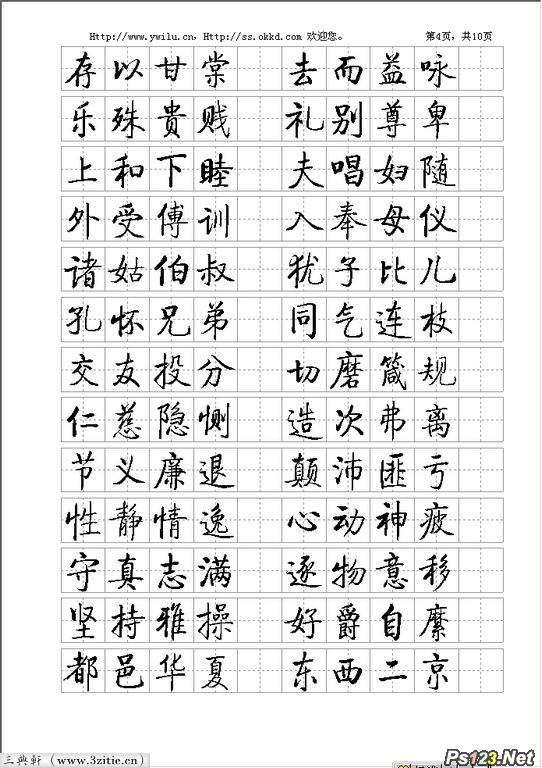 Http://www.ywilu.cn, Http://ss.okkd.com 欢迎您。 第4页,共10页
存以甘棠 去而益咏
乐殊贵贱 礼别尊卑
上和下睦 夫唱妇随
外受傅训 入奉母仪
诸姑伯叔 犹子比儿
孔怀兄弟 同气连枝
交友投分 切磨箴规
仁慈隐恻 造次弗离
节义廉退 颠沛匪亏
性静情逸 心动神疲
守真志满 逐物意移
坚持雅操 好爵自縻
都邑华夏 东西二京
三典軒 (www.3zitie.cn)
Ps123.Net